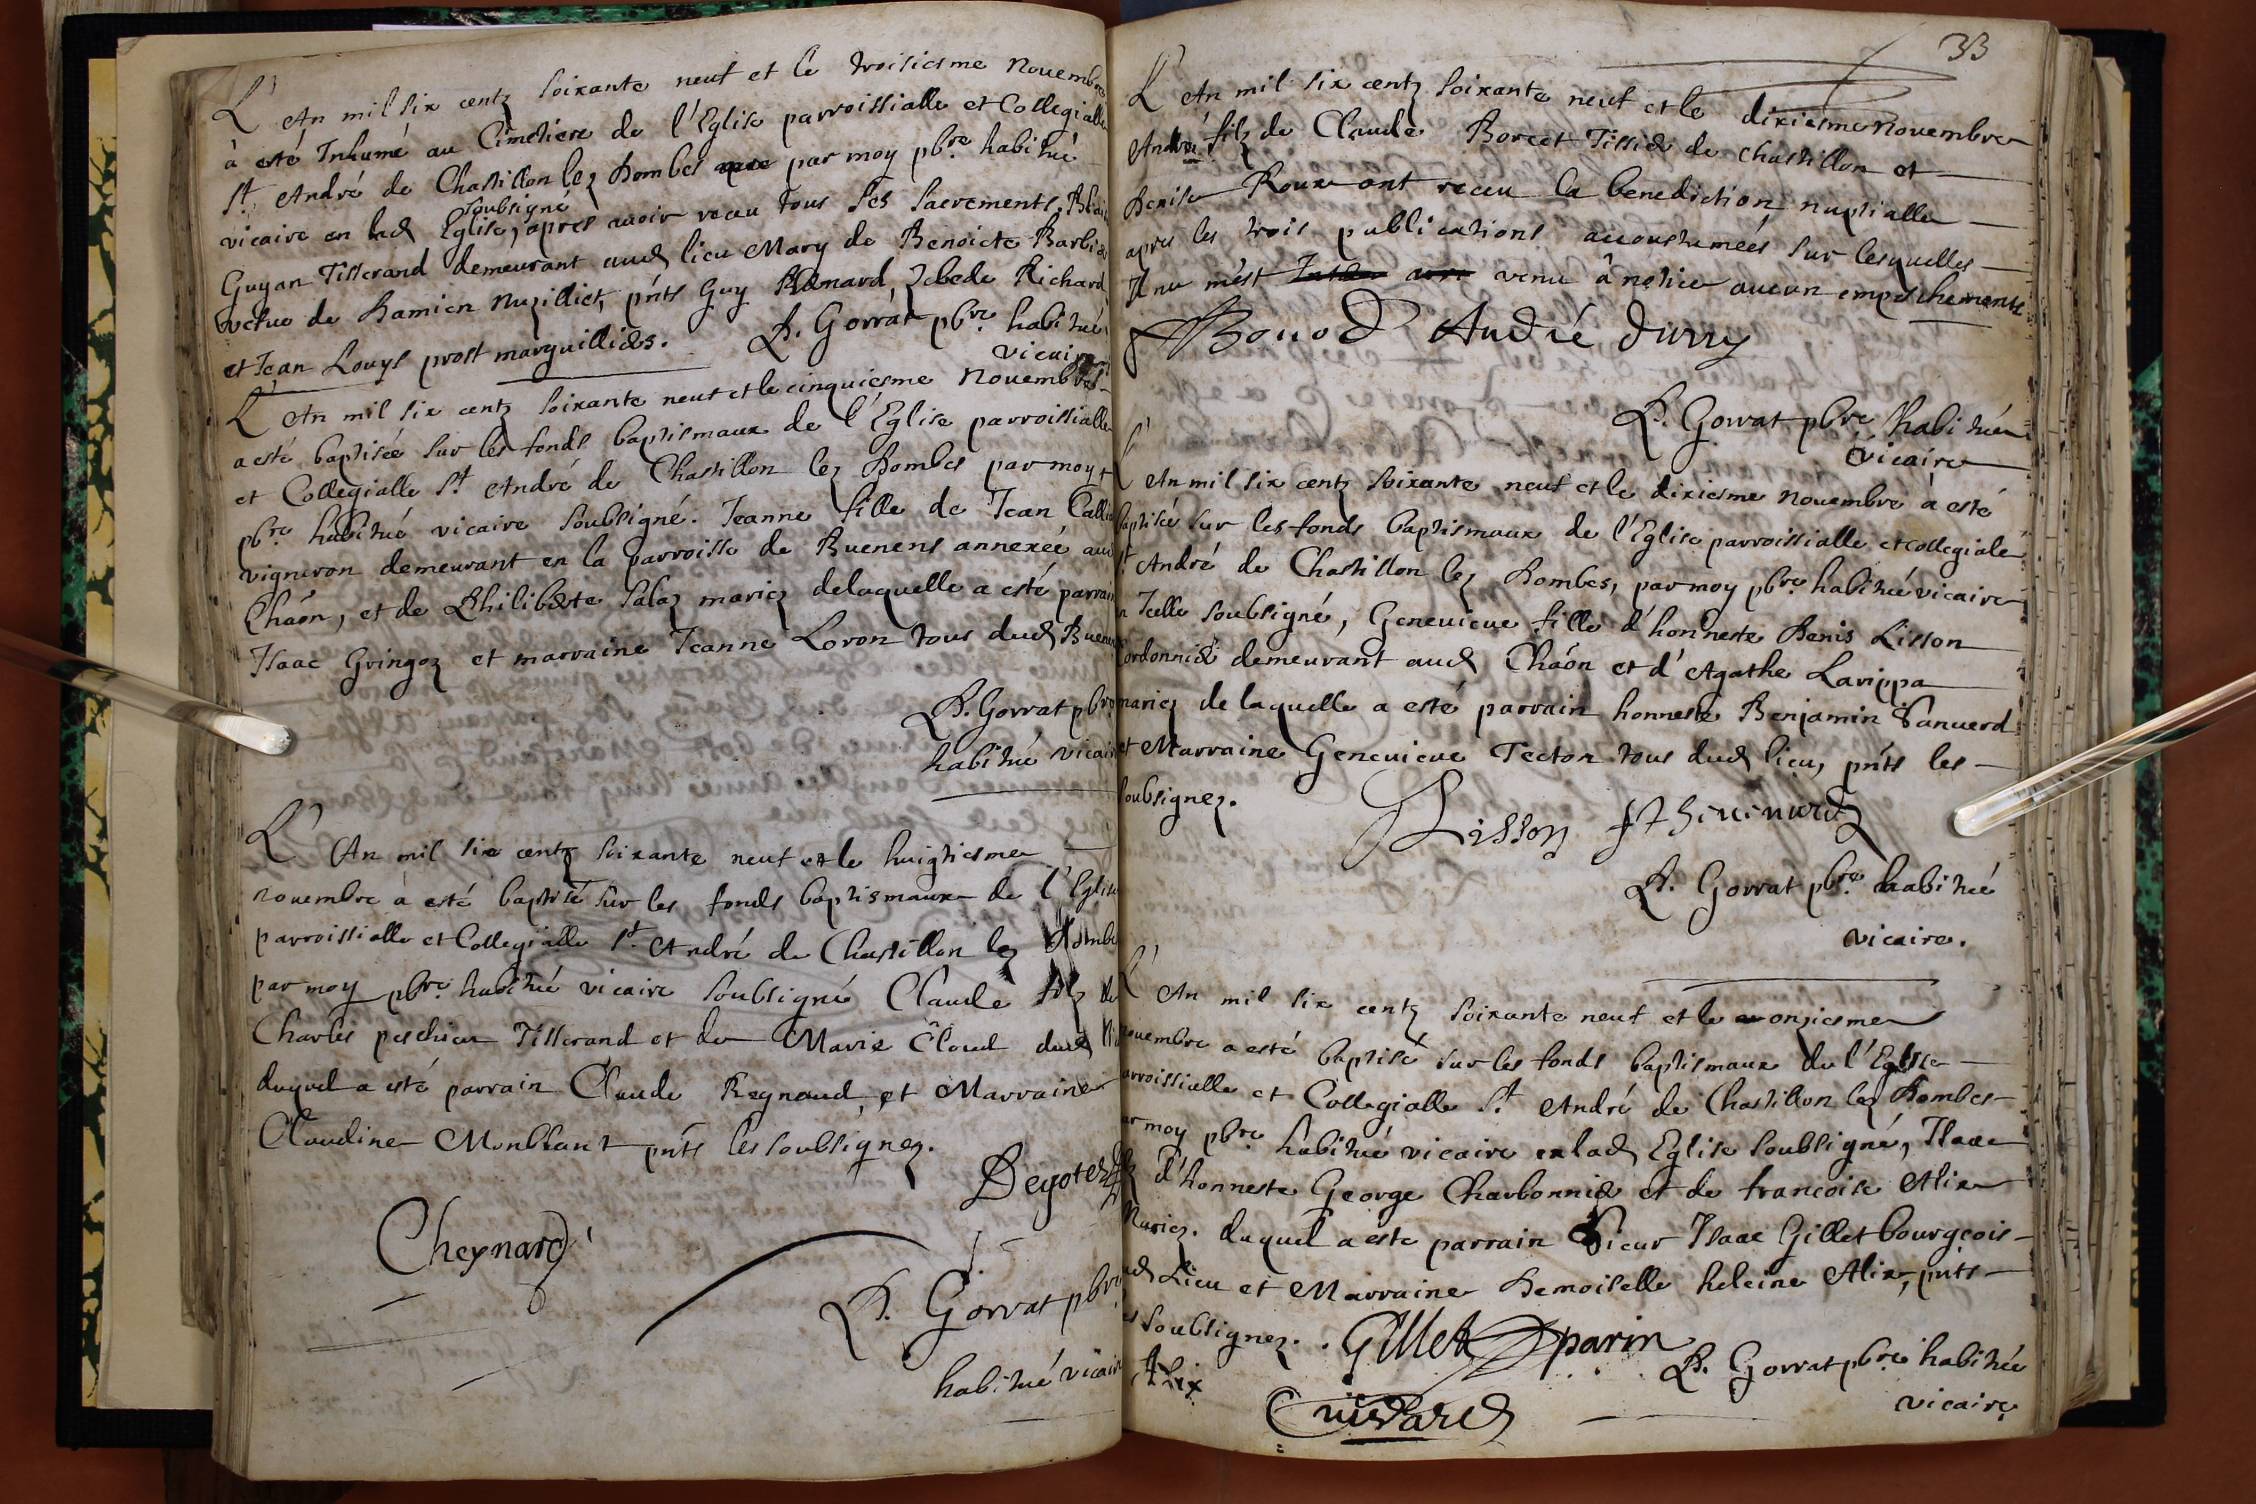 L'An mil six centz soixante neuf et le troisiesme Nouembre
à esté Inhumé au Cimetiere de l'Eglise parroissialle et Collegialle
St. André de Chastillon lez Dombes par moy pbre. habitué
soubsigné
vicaire en lad Eglise, apres auoir receu tous ses sacrements,
Guyan Tisserand demeurant aud lieu Mary de Benoicte Barbier
vefue de Damien Nuzilliet, pnts Guy Renard, Zebede Richard
et Jean Louys prost marguilliers. B. Gorrat pbre. habitué
vicaire
L'An mil six centz soixante neuf et le cinquiesme Nouembre
a esté baptisée sur les fonds baptismaux de l'Eglise parroissialle
et Collegialle St. André de Chastillon lez Dombes par moy
pbre habitué vicaire soubsigné. Jeanne fille de Jean
vigneron demeurant en la parroisse de Buenens annexée aud
Chaôn, et de Philiberte Salaz mariez delaquelle a esté parrain
Isaac Gringoz et marraine Jeanne Loron tous dud Buenens
B. Gorrat pbre
habitué vicaire
L'An mil six centz soixante neuf et le huigtiesme
nouembre à esté baptisé sur les fonds baptismaux de l'Eglise
parroissialle et Collegialle St. André de Chastillon lez Dombes
par moy pbre. habitué vicaire soubsigné Claude filz de
Charles peschier Tisserand et de Marie Cloud dud
duquel a esté parrain Claude Regnaud, et Marraine
Claudine Monblant pnts les soubsignez.
Deyotez
Cheynard
B. Gorrat pbre
habitué vicaire
33
L'An mil six centz soixante neuf et le dixiesme Nouembre
André filz de Claude Borcet Tissier de Chastillon et
Denise Roux ont receu la benediction nuptialle
apres les trois publications accoustumées sur lesquelles
Il ne m'est venu à notice aucun empeschement
Bouod André durry
B. Gorrat pbre habitué
vicaire
L'An mil six centz soixante neuf et le dixiesme Nouembre à esté
baptisée sur les fonds baptismaux de l'Eglise parroissialle et collegiale
St. André de Chastillon lez Dombes, par moy pbre. habitué vicaire
en Icelle soubsigné, Geneuieue fille d'honneste Denis Lisson
Cordonnier demeurant aud Chaôn et d'Agathe Larippa
mariez de laquelle a esté parrain honneste Benjamin
et Marraine Geneuieue Tecton tous dud lieu, pnts les
soubsignez.
Lisson
B. Gorrat pbre. habitué
vicaire.
L'An mil six centz soixante neuf et le onziesme
nouembre a esté baptisé sur les fonds baptismaux de l'Eglise
parroissialle et Collegialle St. André de Chastillon lez Dombes
par moy pbre habitué vicaire en lad Eglise soubsigné, Isaac
filz d'honneste George Charbonnier et de francoise Alix
Mariez. duquel a esté parrain Sieur Isaac Gillet bourgeois
dud Lieu et Marraine Demoiselle heleine Alix, pnts
les soubsignez. Gillet parin
Alix B. Gorrat pbre habitué
vicaire
Cuisdard